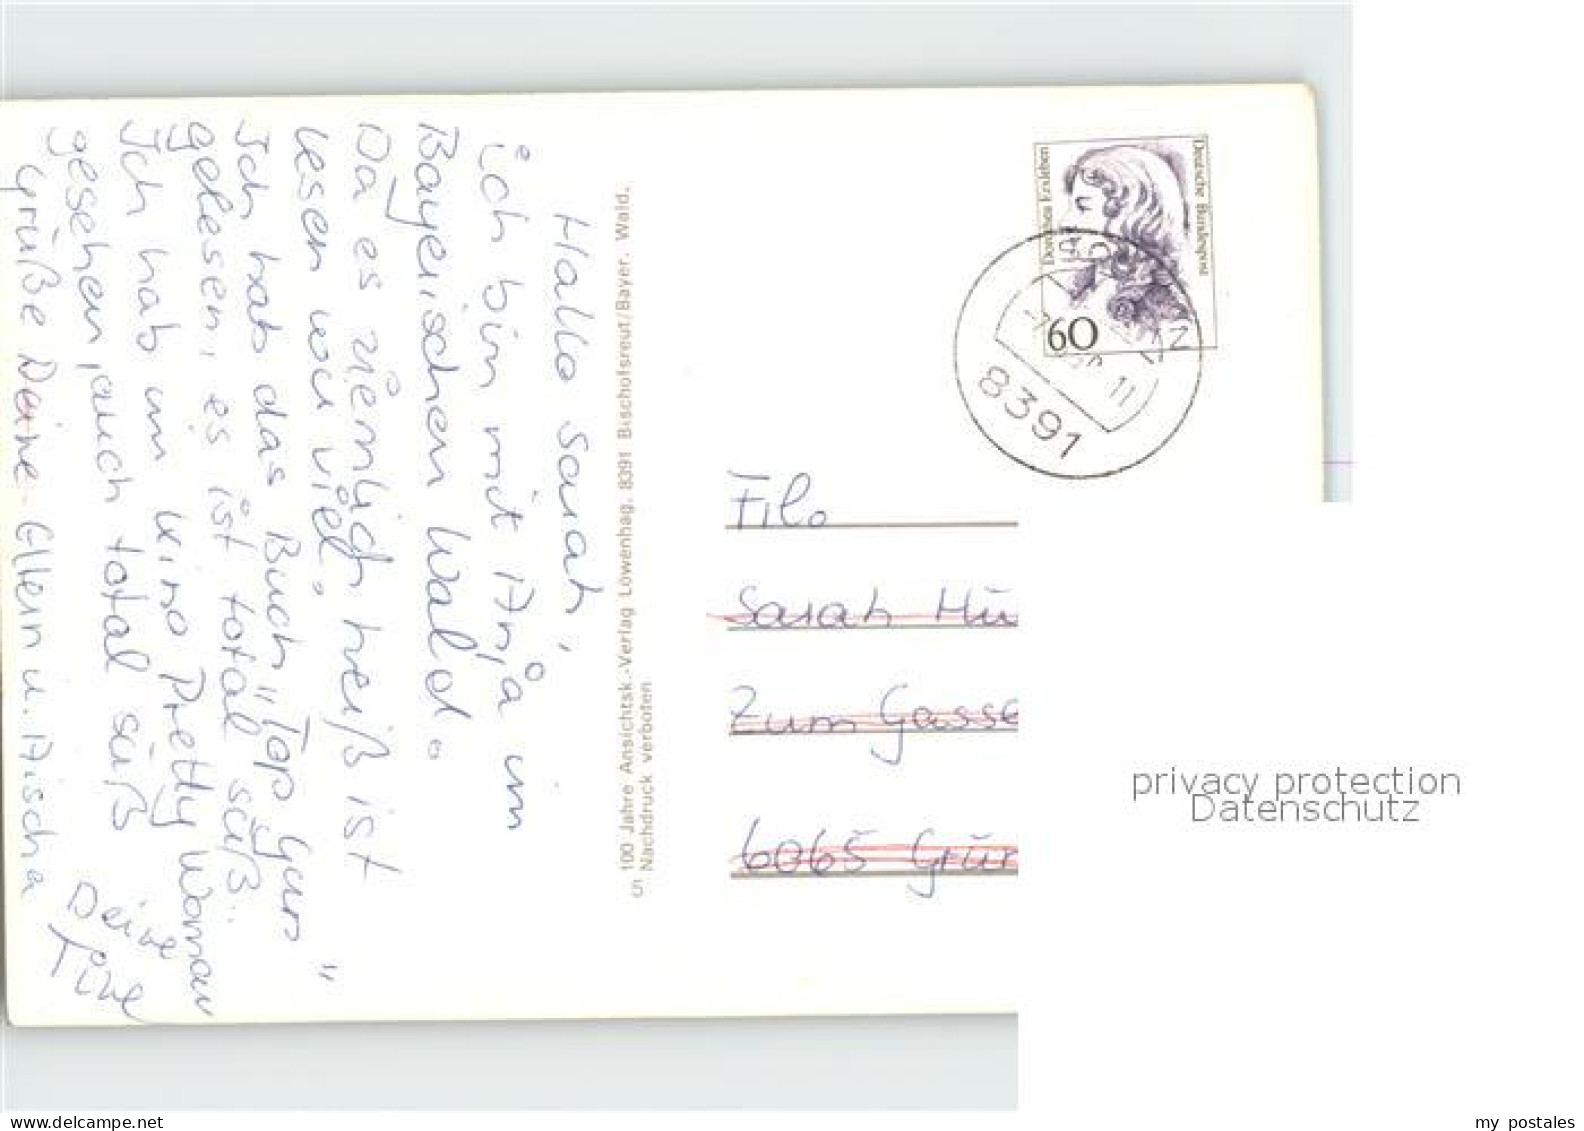 Hallo Sarah,
ich bin mit Anja im
Bayerischen Wald.
Da es ziemlich heiß ist
lesen wir viel.
Ich hab das Buch "Top Gun"
gelesen, es ist total süß..
Ich hab im Kino Pretty Woman
gesehen, auch total süß
Deine
Tine
Grüße Deine Ellern u. Aischa
100 Jahre Ansichtsk.-Verlag Löwenhag, 8391 Bischofsreut/Bayer. Wald.
Nachdruck verboten
Dorothea Erxleben
Deutsche Bundespost
60
8391
Filo
Sarah Hü
Zum Gasse
6065 Grün
privacy protection
Datenschutz
Delcampe.net
my postales